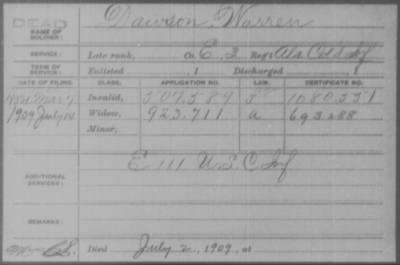 DEAD
NAME OF SOLDIER: Dawson Warren
SERVICE: Late rank, Co. E, 3 Reg't Ala Col'd Inf
TERM OF SERVICE: Enlisted 1 Discharged 1
DATE OF FILING. CLASS. APPLICATION NO. LAW. CERTIFICATE NO.
Invalid, 507,589 1080551
1909 July 10 Widow, 923,711 a 693288
Minor,
E 111 U S C Inf
ADDITIONAL SERVICES:
REMARKS:
Died July 2, 1909, at